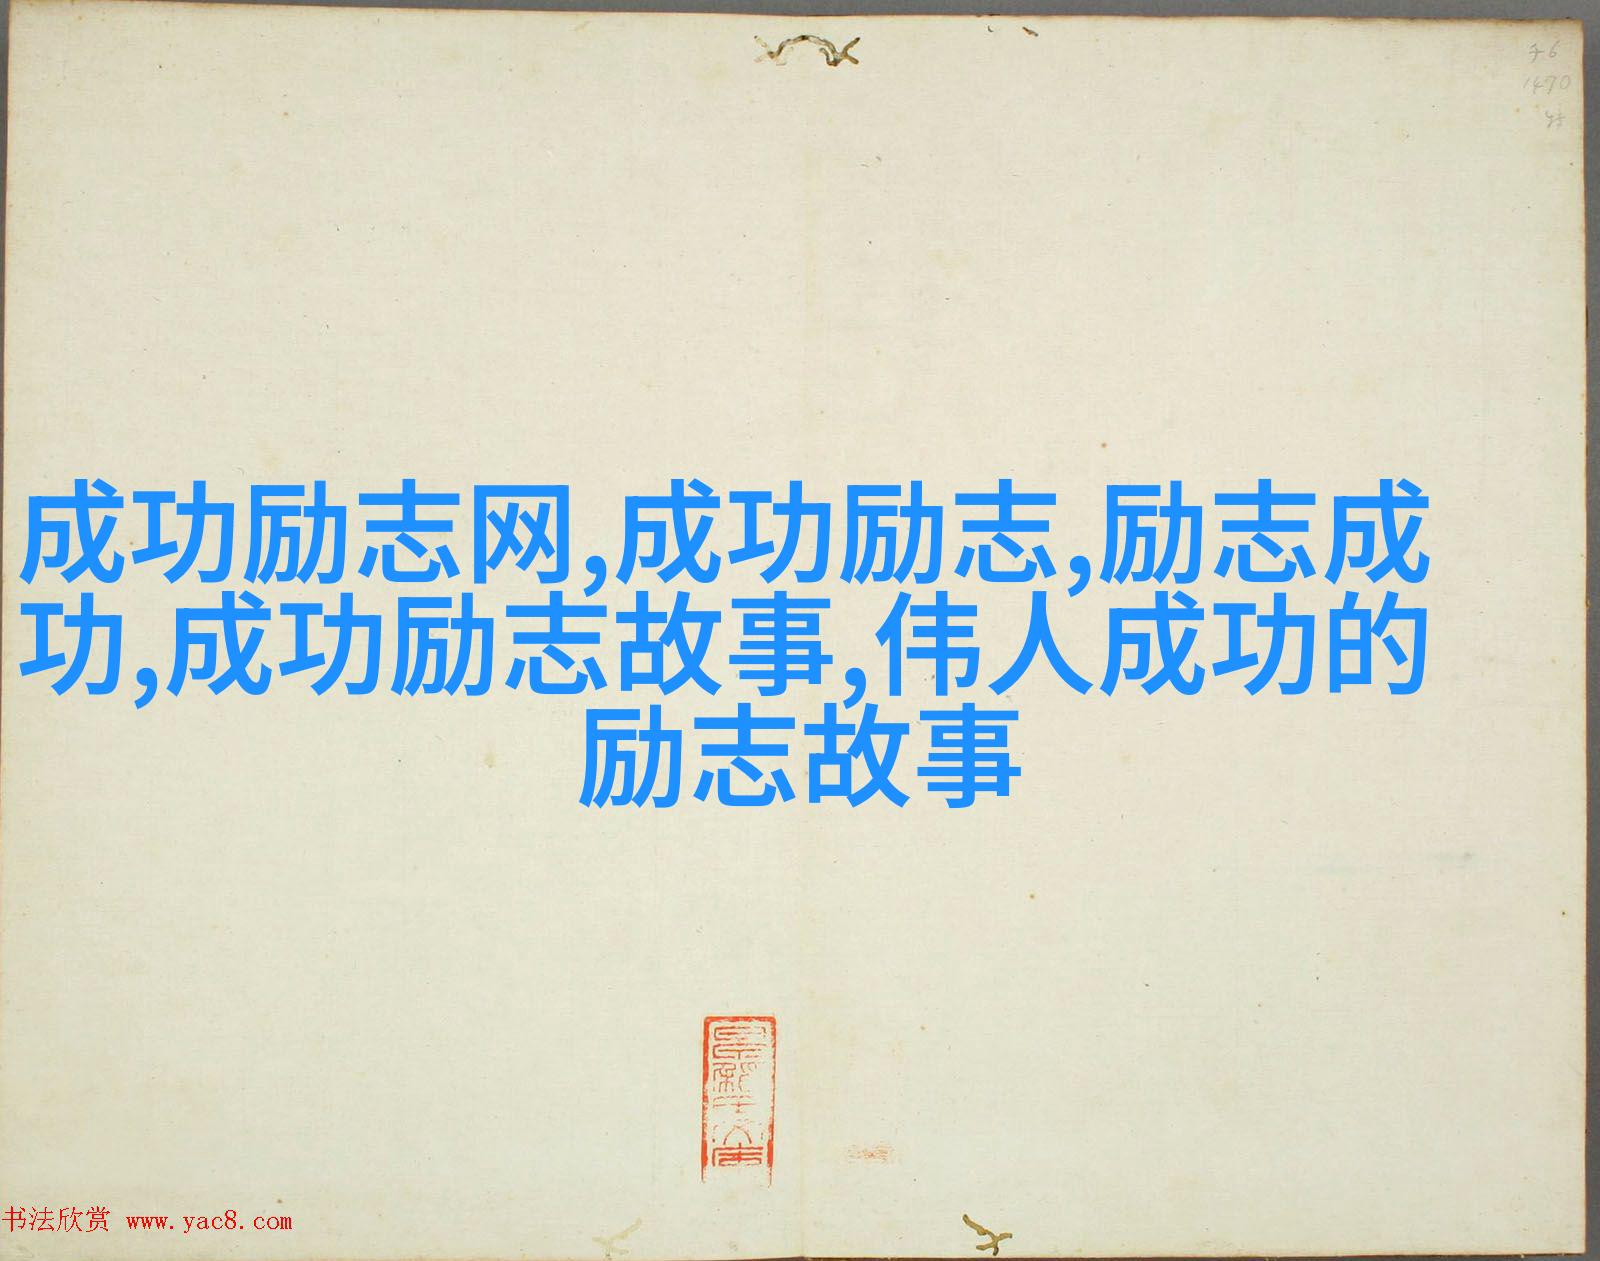 成功励志网,成功励志,励志成
功,成功励志故事,伟人成功的
励志故事
1470
书法欣赏 www.yac8.com